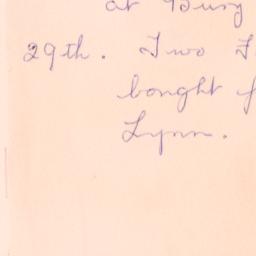 at Busy
29th. Two F
bought f
Lynn.